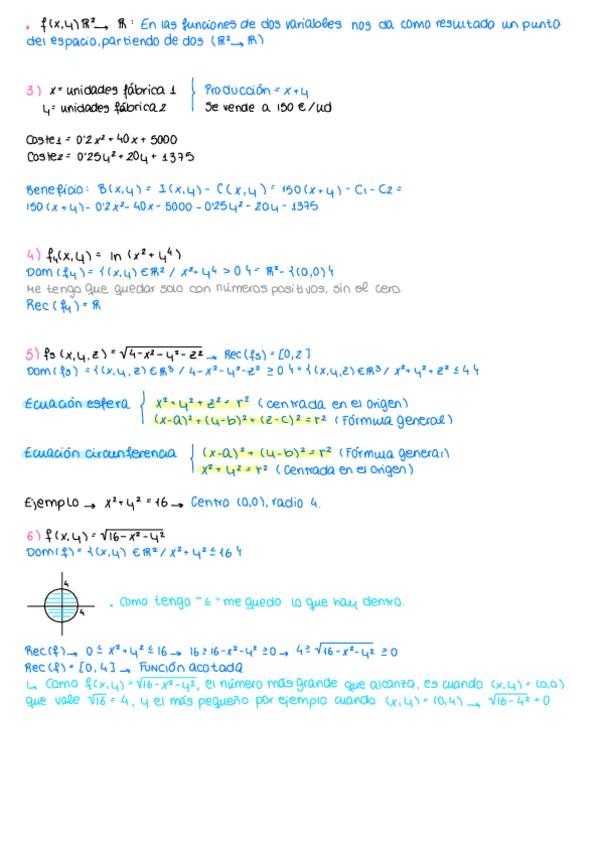 . f(x,y) ℝ² → ℝ : En las funciones de dos variables nos da como resultado un punto
del espacio, partiendo de dos (ℝ² → ℝ)
3) x = unidades fábrica 1 Producción = x+y
y = unidades fábrica 2 Se vende a 150 €/ud
Coste1 = 0'2x² + 40x + 5000
Coste2 = 0'25y² + 20y + 1375
Beneficio: B(x,y) = I(x,y) - C(x,y) = 150(x+y) - C1 - C2 =
150(x+y) - 0'2x² - 40x - 5000 - 0'25y² - 20y - 1375
4) f₄(x,y) = ln (x² + y⁴)
Dom (f₄) = {(x,y) ∈ ℝ² / x² + y⁴ > 0} = ℝ² - {(0,0)}
Me tengo que quedar solo con números positivos, sin el cero.
Rec (f₄) = ℝ
5) f₅ (x,y,z) = √4-x²-y²-z² → Rec (f₅) = [0,2]
Dom (f₅) = {(x,y,z) ∈ ℝ³ / 4-x²-y²-z² ≥ 0} = {(x,y,z) ∈ ℝ³ / x²+y²+z² ≤ 4}
Ecuación esfera { x² + y² + z² = r² (centrada en el origen)
(x-a)² + (y-b)² + (z-c)² = r² (Fórmula general)
Ecuación circunferencia { (x-a)² + (y-b)² = r² (Fórmula general)
x² + y² = r² (Centrada en el origen)
Ejemplo → x² + y² = 16 → Centro (0,0), radio 4.
6) f(x,y) = √16-x²-y²
Dom(f) = {(x,y) ∈ ℝ² / x² + y² ≤ 16}
4
4
. Como tengo "≤" me quedo lo que hay dentro.
Rec(f) → 0 ≤ x² + y² ≤ 16 → 16 ≥ 16-x²-y² ≥ 0 → 4 ≥ √16-x²-y² ≥ 0
Rec(f) = [0,4] → FUNCIÓN acotada
↳ Como f(x,y) = √16-x²-y², el número más grande que alcanza, es cuando (x,y) = (0,0)
que vale √16 = 4, y el más pequeño por ejemplo cuando (x,y) = (0,4) → √16-4² = 0